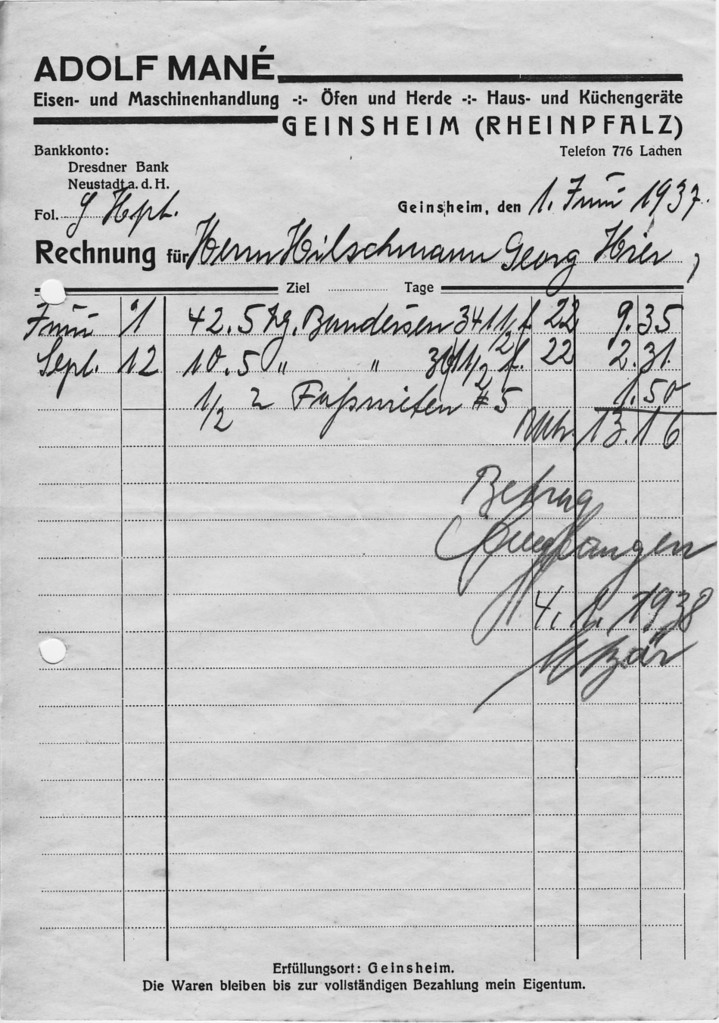 ADOLF MANÉ
Eisen- und Maschinenhandlung -:- Öfen und Herde -:- Haus- und Küchengeräte
GEINSHEIM (RHEINPFALZ)
Bankkonto:
Telefon 776 Lachen
Dresdner Bank
Neustadt a. d. H.
Fol.
Geinsheim, den 1. Juni 1937.
Rechnung für Herrn Hilschmann Georg Hier,
Ziel Tage
Juni 1 42.5 Kg. Bandeisen 22 9.35
Sept. 12 10.5 " " 22 2.31
1/2 Faßnieten # 5 1.50
13.16
Betrag
Empfangen
4. 1. 1938
Erfüllungsort: Geinsheim.
Die Waren bleiben bis zur vollständigen Bezahlung mein Eigentum.